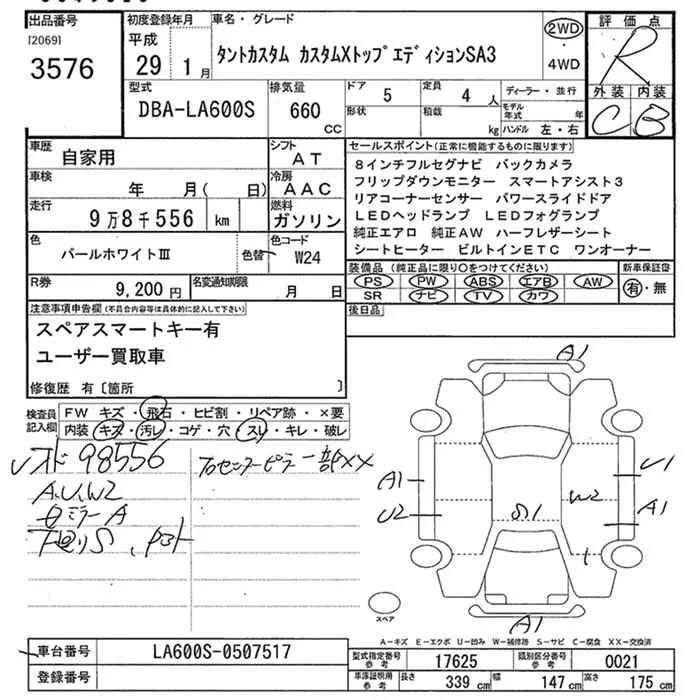 出品番号
[2069]
3576
初度登録年月
平成
29 1月
車名・グレード
タントカスタム カスタムXトップエディションSA3
2WD
・
4WD
評価点
R
外装 内装
C B
型式
DBA-LA600S
排気量
660
CC
ドア
5
定員
4人
形状
積載
kg
ディーラー・並行
モデル年式 年
ハンドル 左・右
車歴
自家用
シフト
AT
車検
年 月( 日)
冷房
AAC
走行
9万8千556 km
燃料
ガソリン
色
パールホワイトIII
色替
色コード
W24
R券
9,200円
名変通知期限
月 日
セールスポイント(正常に機能するものに限ります)
8インチフルセグナビ バックカメラ
フリップダウンモニター スマートアシスト3
リアコーナーセンサー パワースライドドア
LEDヘッドランプ LEDフォグランプ
純正エアロ 純正AW ハーフレザーシート
シートヒーター ビルトインETC ワンオーナー
装備品(純正品に限り○をつけてください)
PS PW ABS エアB AW
SR ナビ TV カワ
新車保証書
有・無
後日品
注意事項申告欄(不具合内容等は具体的に記入して下さい)
スペアスマートキー有
ユーザー買取車
修復歴 有〔箇所 〕
検査員
記入欄
FW キズ・飛石・ヒビ割・リペア跡・×要
内装 キズ・汚レ・コゲ・穴・スレ・キレ・破レ
98556
A.U.W2
ミラーA
センターピラー一部XX
A1
A1
U2
U1
A1
W2
S1
A1
スペア
A−キズ E−エクボ U−凹み W−補修跡 S−サビ C−腐食 XX−交換済
車台番号
LA600S-0507517
登録番号
型式指定番号
参考
17625
類別区分番号
参考
0021
車庫証明用
参考
長さ
339 cm
幅
147 cm
高さ
175 cm